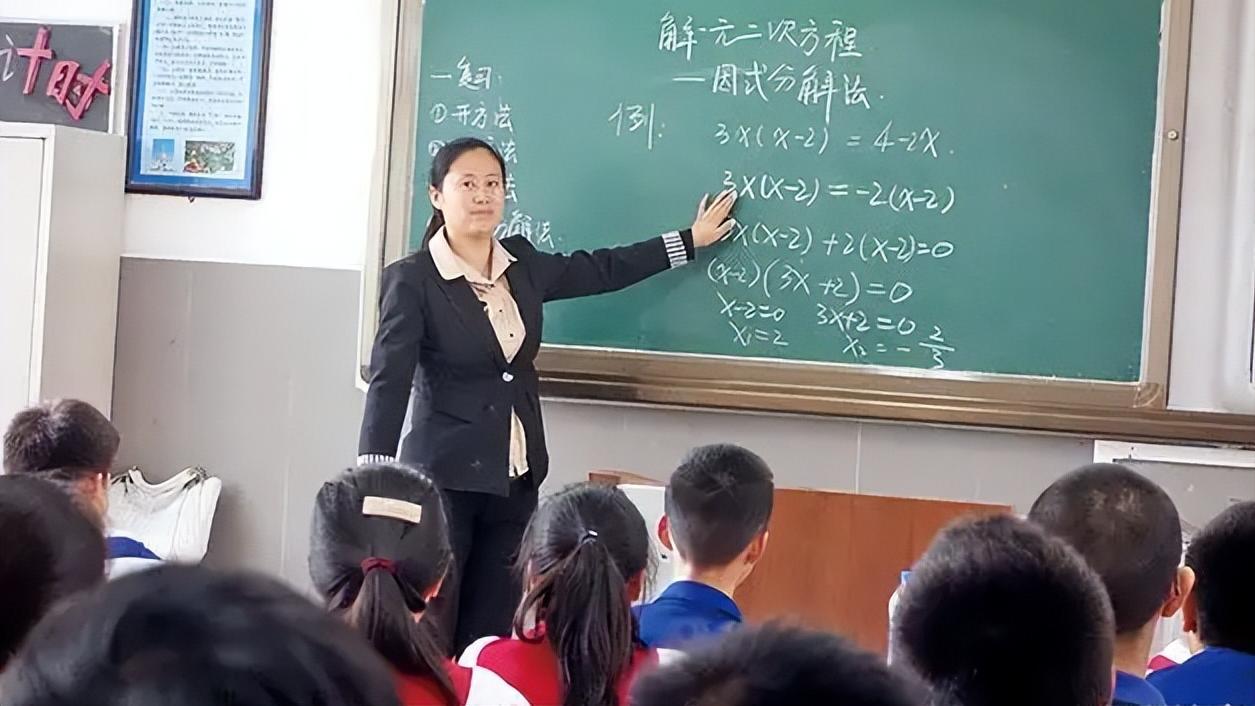 计时
一复习:
①开方法
法
法
解法.
解一元二次方程
—因式分解法.
例:
3x(x-2) = 4-2x.
3x(x-2) = -2(x-2)
x(x-2) +2(x-2)=0
(x-2)(3x+2)=0
x-2=0 3x+2=0
x₁=2 x₂=-2/3